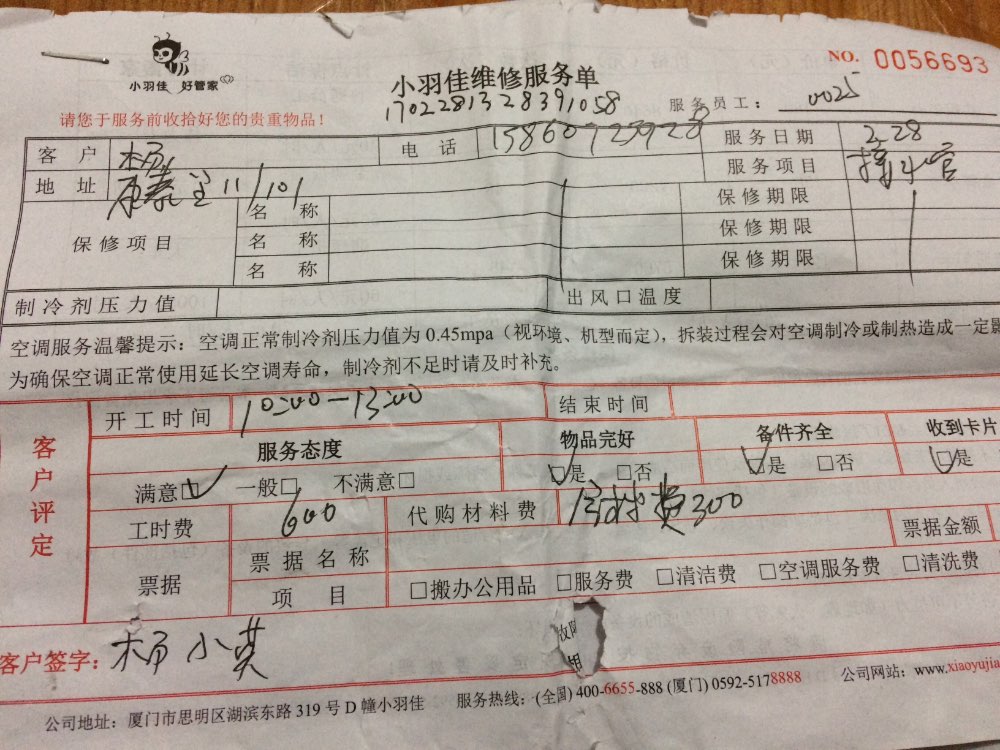 NO. 0056693
小羽佳 好管家
小羽佳维修服务单
1702281328391058
服务员工: 0025
请您于服务前收拾好您的贵重物品!
客户 杨 电话 服务日期 2.28
地址 11/101 服务项目
保修项目 名称 保修期限
名称 保修期限
名称 保修期限
制冷剂压力值 出风口温度
空调服务温馨提示: 空调正常制冷剂压力值为 0.45mpa (视环境、机型而定), 拆装过程会对空调制冷或制热造成一定影
为确保空调正常使用延长空调寿命, 制冷剂不足时请及时补充。
客户评定
开工时间 10:00—13:00 结束时间
服务态度 物品完好 备件齐全 收到卡片
满意☑ 一般□ 不满意□ ☑是 □否 ☑是 □否 ☑是
工时费 600 代购材料费 材料费300
票据 票据名称 票据金额
项目 □搬办公用品 □服务费 □清洁费 □空调服务费 □清洗费
客户签字: 杨小英
公司地址: 厦门市思明区湖滨东路 319 号 D 幢小羽佳 服务热线: (全国) 400-6655-888 (厦门) 0592-5178888 公司网站: www.xiaoyujia